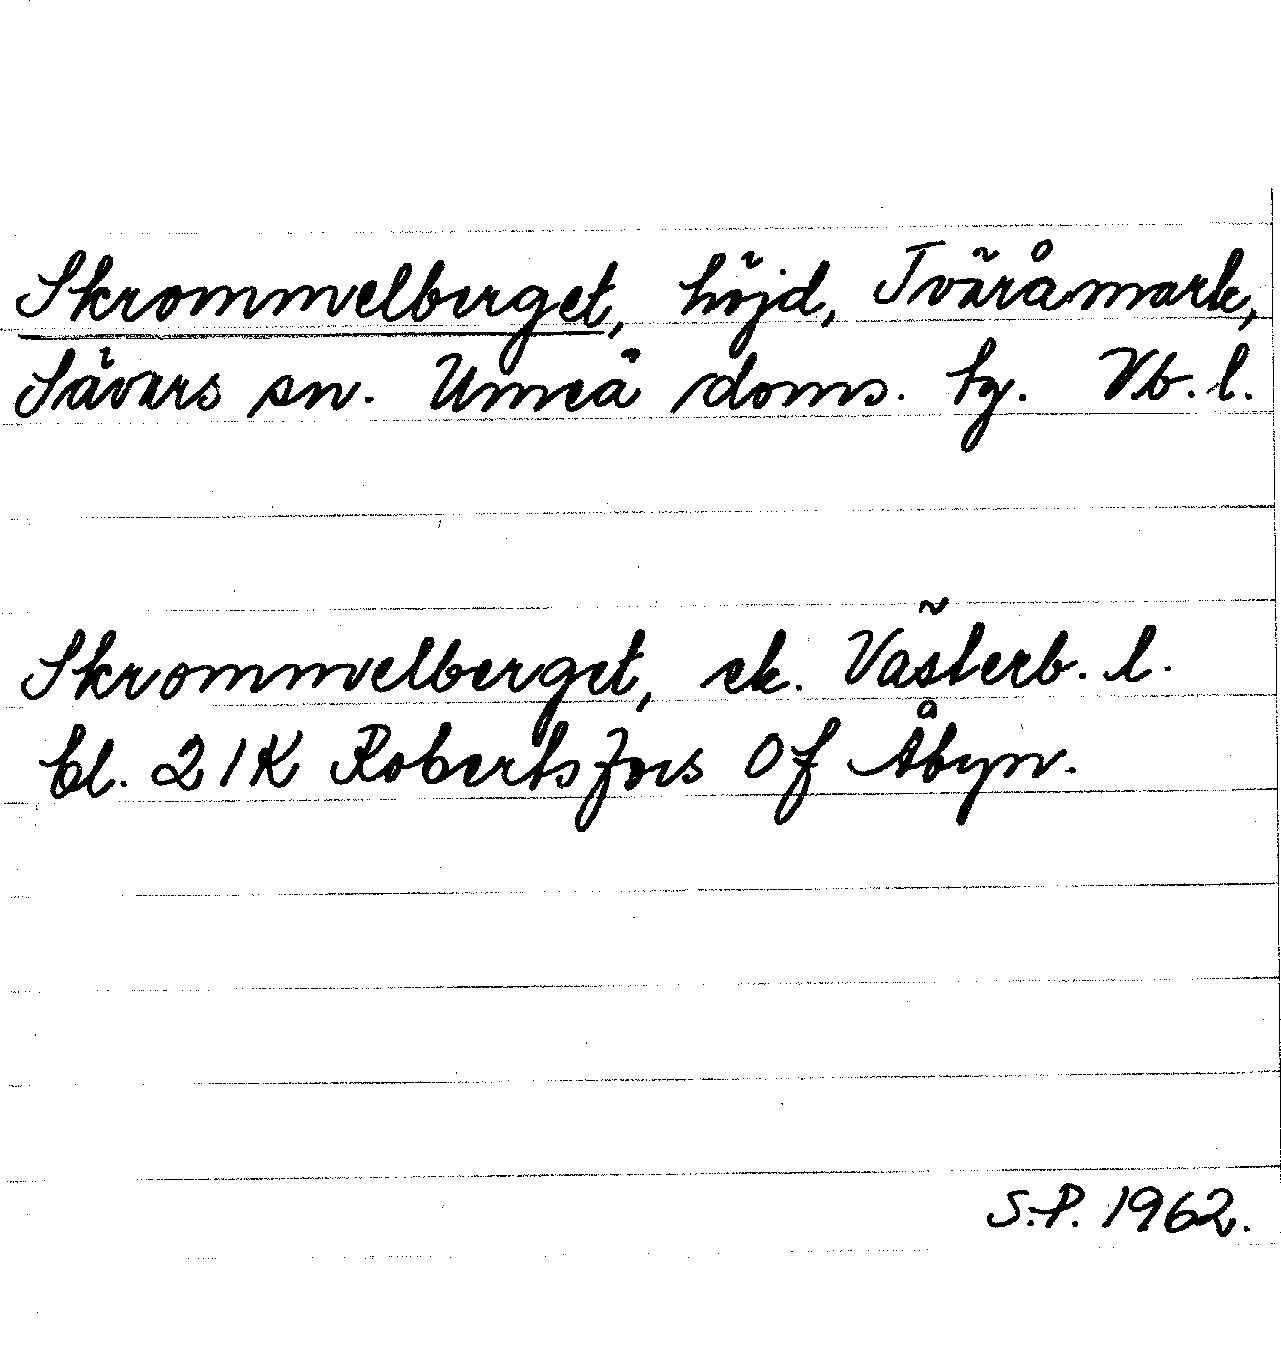 Skrommelberget, höjd, Tväråmark,
Sävars sn. Umeå doms. tg. Vb. l.
Skrommelberget, ek. Västerb. l.
bl. 21K Robertsfors 0f Åbyn.
S.P. 1962.